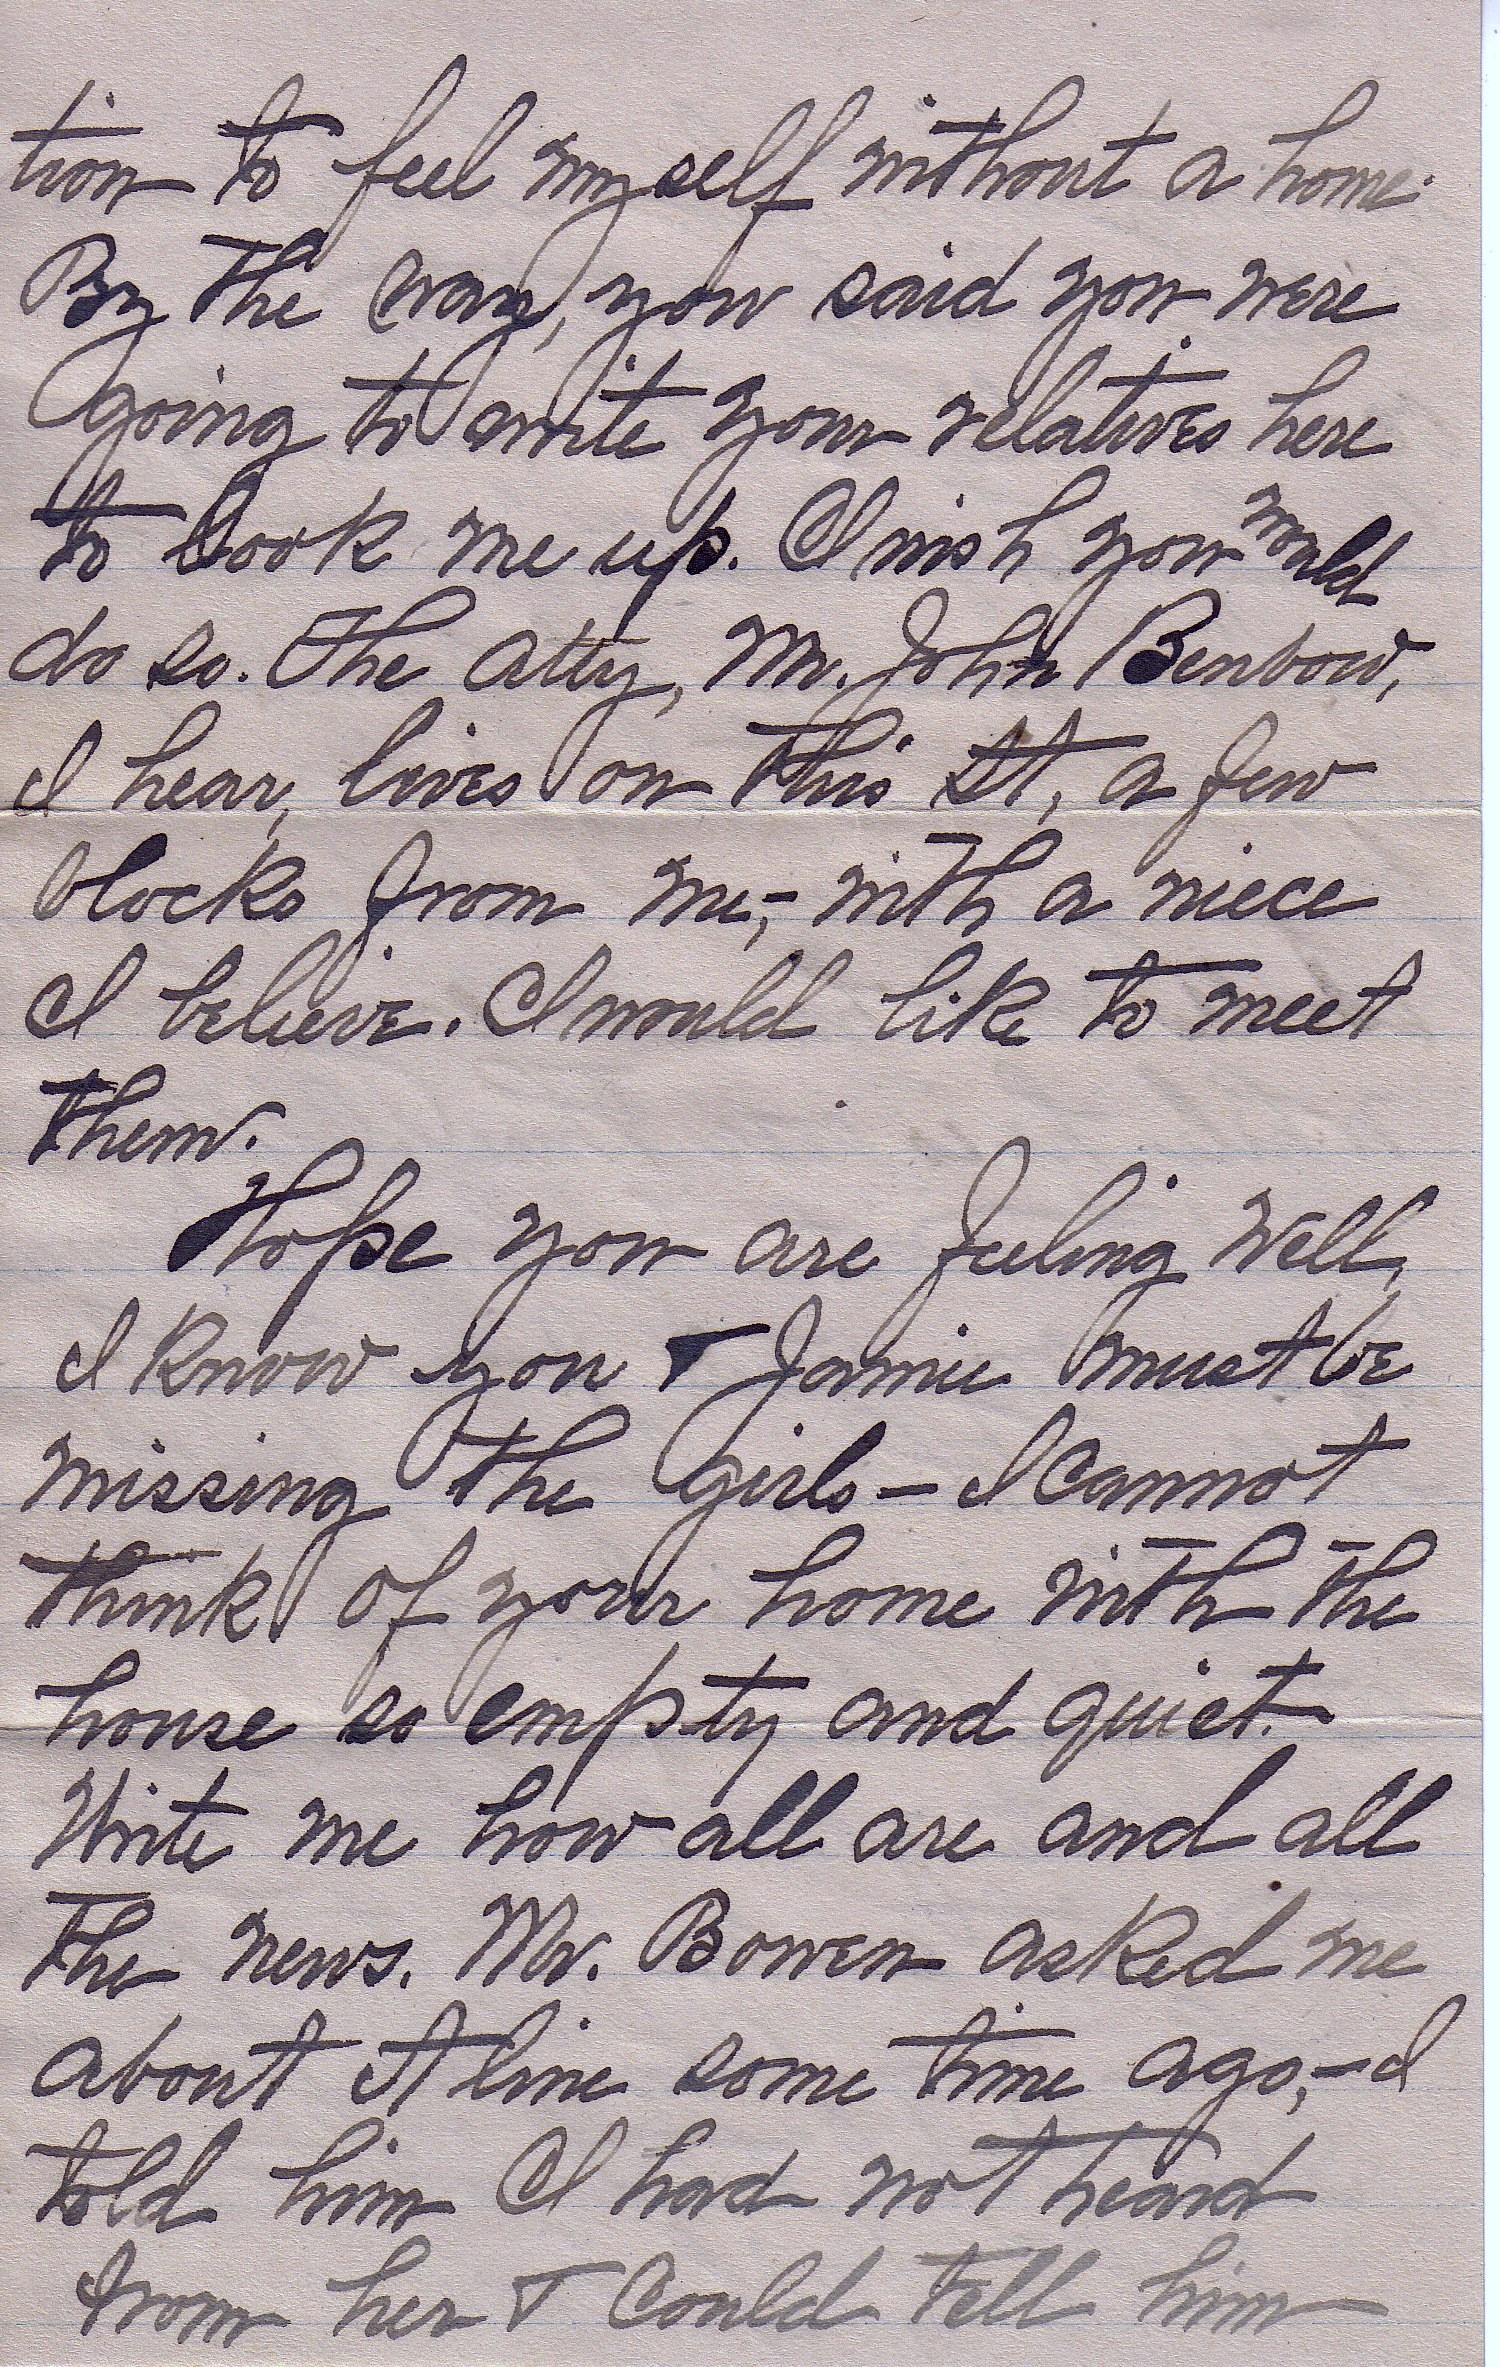 tion to feel myself without a home.
By the way, you said you were
going to write your relatives here
to look me up. I wish you would
do so. The atty, Mr. John Benbow,
I hear, lives on this St, a few
blocks from me,- with a niece
I believe. I would like to meet
them.
Hope you are feeling well,
I know you & Jamie must be
missing the girls - I cannot
think of your home with the
house so empty and quiet.
Write me how all are and all
the news. Mr. Bowen asked me
about Aline some time ago,- I
told him I had not heard
from her & could tell him